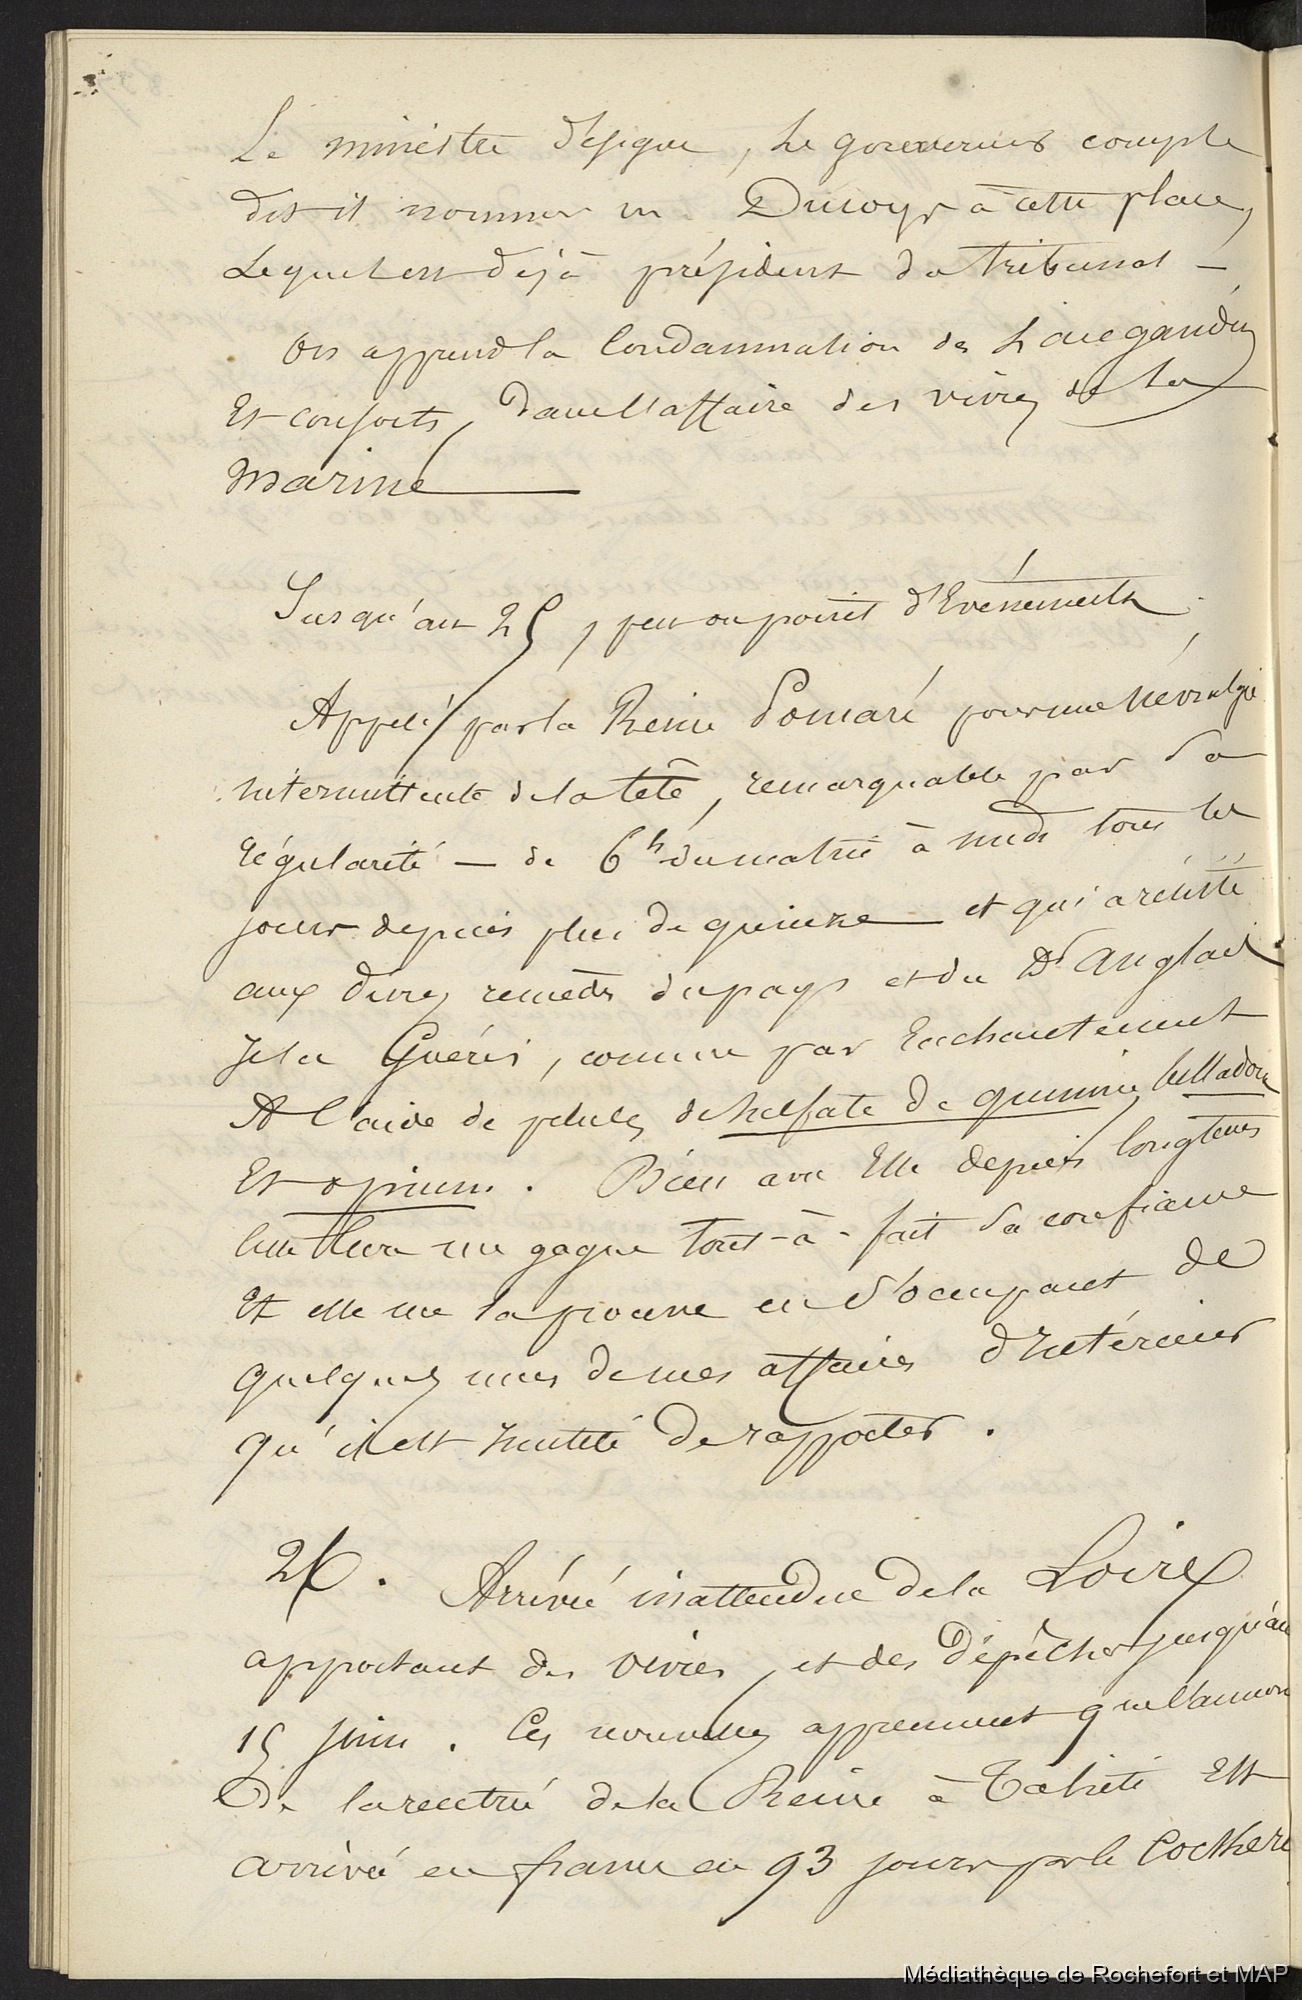 Le ministre désigne, le gouverneur compte
dit il nommer m. Ducoys à cette place,
lequel est déjà président du tribunal —
On apprend la condamnation de
Et consorts, dans l'affaire des vivres de la
marine
Jusqu'au 25, peu ou point d'Evénements
Appelé par la Reine Pomaré pour une Névralgie
intermittente de la tête, remarquable par sa
régularité — de 6h du matin à midi tous les
jours depuis plus de quinze — et qui a résisté
aux divers remèdes du pays et du Dr anglais
Je la Guéris, comme par Enchantement
A l'aide de pilules de sulfate de quinine, belladone
Et opium. Bien avec Elle depuis longtems
cette cure me gagne tout-à-fait sa confiance
Et elle me la prouve en s'occupant de
quelques unes de mes affaires d'Intérieur
qu'il est Inutile de rapporter.
26. Arrivée inattendue de la Loire
apportant des vivres, et des Dépêches jusqu'au
15 juin. Ces nouvelles apprennent que l'annonce
De la rentrée de la Reine à Tahiti Est
arrivée en france en 93 jours par le
Médiathèque de Rochefort et MAP